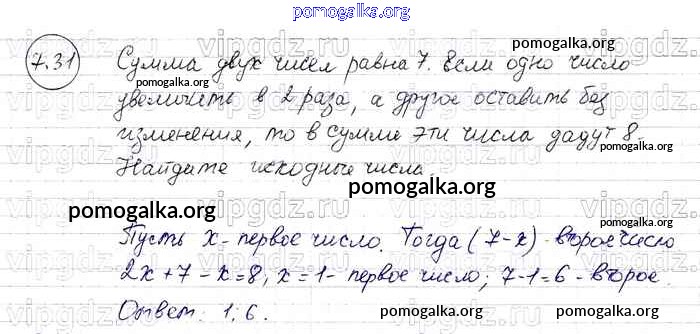 pomogalka.org
7.31
Сумма двух чисел равна 7. Если одно число
увеличить в 2 раза, а другое оставить без
изменения, то в сумме эти числа дадут 8.
Найдите исходные числа.
Пусть x - первое число. Тогда (7-x) - второе число
2x+7-x=8, x=1 - первое число; 7-1=6 - второе.
Ответ: 1; 6.
pomogalka.org
pomogalka.org
pomogalka.org
pomogalka.org
pomogalka.org
pomogalka.org
pomogalka.org
pomogalka.org
pomogalka.org
vipgdz.ru
vipgdz.ru
vipgdz.ru